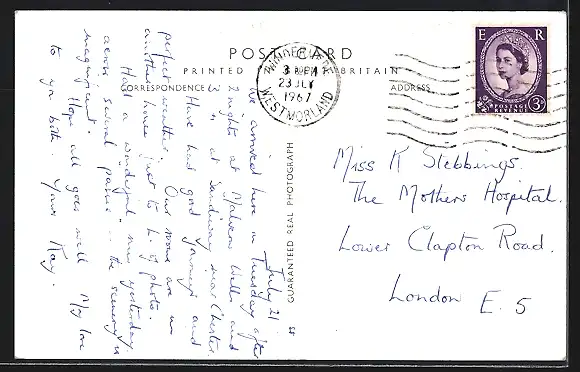 POST CARD
PRINTED IN BRITAIN
CORRESPONDENCE
ADDRESS
GUARANTEED REAL PHOTOGRAPH
WINDERMERE
3 PM
23 JLY
1967
WESTMORLAND
E R
POSTAGE
REVENUE
3D
July 21
We arrived here on Tuesday after
2 nights at Malvern Wells and
at Sandiway near Chester.
Have had good journeys and
perfect weather. Our rooms are in
another house just to L. of photo.
Had a wonderful run yesterday
across several passes – the scenery is
magnificent.
Hope all goes well. My love
to you both. Yours Kay.
Miss K Stebbings.
The Mothers Hospital.
Lower Clapton Road.
London E. 5